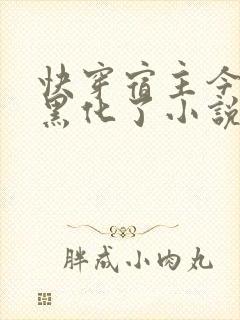 快穿宿主今
黑化了小說
胖成小肉丸